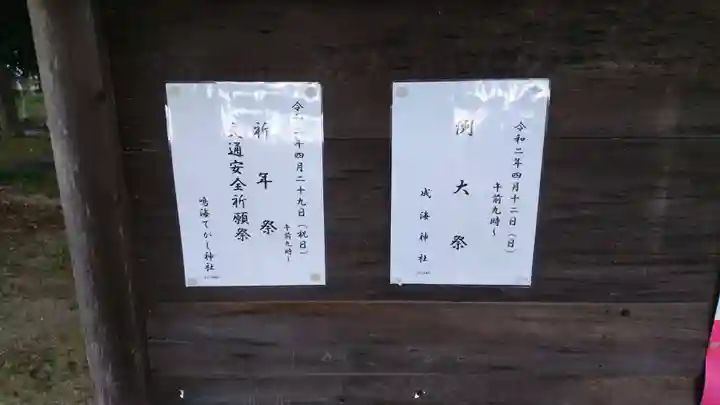 令和二年四月十二日(日)
午前九時~
例大祭
成海神社
令和二年四月二十九日(祝日)
午前九時~
祈年祭
交通安全祈願祭
鳴海てがし神社